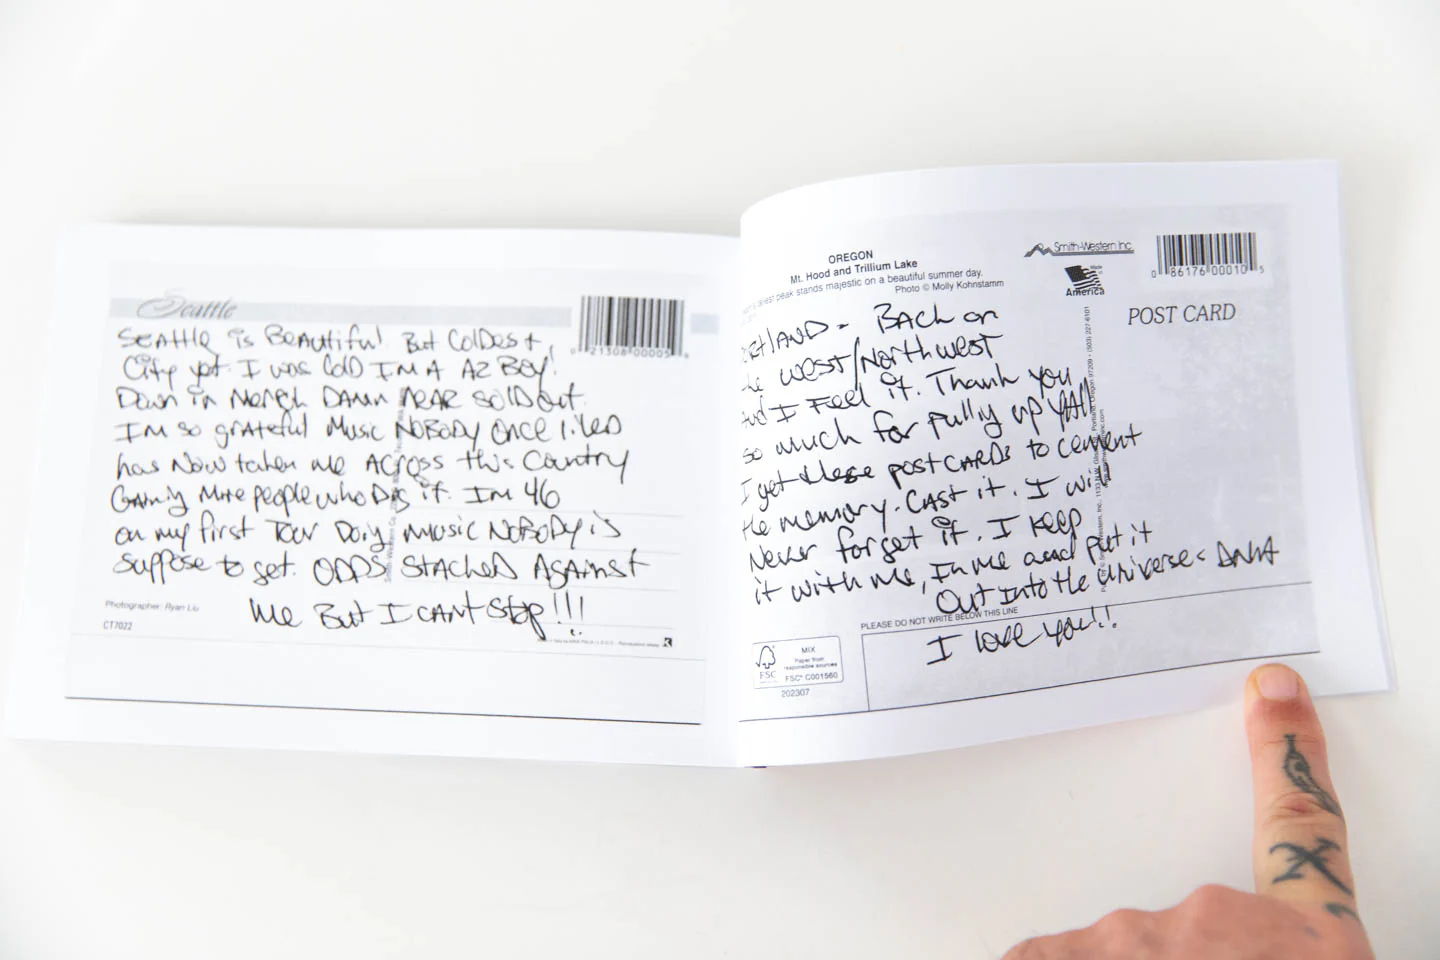 Seattle
SEATTLE is BEAutiful. But ColDest
City yet. I was ColD I'M A AZ Boy!
Down in Merch DAMN NEAR SolD out.
I'M so grAteful Music NoBoDy once likeD
has Now taken me ACROSS this Country
Gaining More people who Dig it. I'm 46
on my first Tour Doing music NoBoDy is
suppose to get. ODDS STACKeD AgAinst
Me But I CAN'T Stop!!!
Photographer: Ryan Liu
CT7022
OREGON
Mt. Hood and Trillium Lake
peak stands majestic on a beautiful summer day.
Photo © Molly Kohnstamm
Smith-Western Inc.
Made in
America
0 86176 00010 5
POST CARD
RtlAND - BACk on
the west/Northwest
And I Feel it. Thank you
so much for pulling up YAll
I get these postCARDs to cement
the memory. Cast it. I wil
Never forget it. I Keep
it with me, In me and put it
Out Into the Universe
I love you!!
PLEASE DO NOT WRITE BELOW THIS LINE
FSC
MIX
Paper from
responsible sources
FSC® C001560
202307